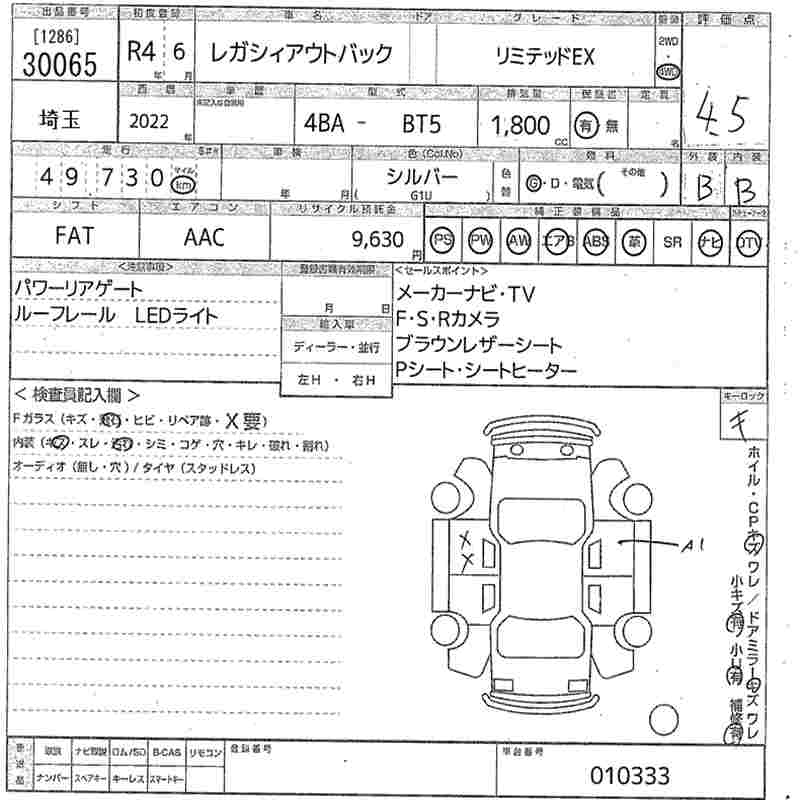 出品番号 初度登録 車名 ドア グレード 駆動 評価点
[1286]
30065 R4年 6月 レガシィアウトバック リミテッドEX 2WD・4WD 4.5
西暦 車歴 型式 排気量 保証書 定員
埼玉 2022年 4BA - BT5 1,800cc 有・無 名
走行 車検 色(Col.No) 色替 燃料 外装 内装
49730 マイル km 年 月 シルバー (G1U) G・D・電気( その他 ) B B
シフト エアコン リサイクル預託金 純正装備品
FAT AAC 9,630円 PS PW AW エアB ABS 革 SR ナビ DTV
登録書類有効期限 <セールスポイント>
パワーリアゲート 月 日 メーカーナビ・TV
ルーフレール LEDライト 輸入車 F・S・Rカメラ
ディーラー・並行 ブラウンレザーシート
左H・右H Pシート・シートヒーター
<検査員記入欄> キーロック
キ
Fガラス(キズ・飛石・ヒビ・リペア跡・X要)
内装(キズ・スレ・汚れ・シミ・コゲ・穴・キレ・破れ・割れ)
オーディオ(無し・穴)/タイヤ(スタッドレス)
X
X
A1
ホイル・CPキズワレ/ドアミラーキズワレ
小キズ有 小U有 補修有
ナビ取説 ロム/SD B-CAS リモコン 登録番号 車台番号
ナンバー スペアキー キーレス スマートキー
010333